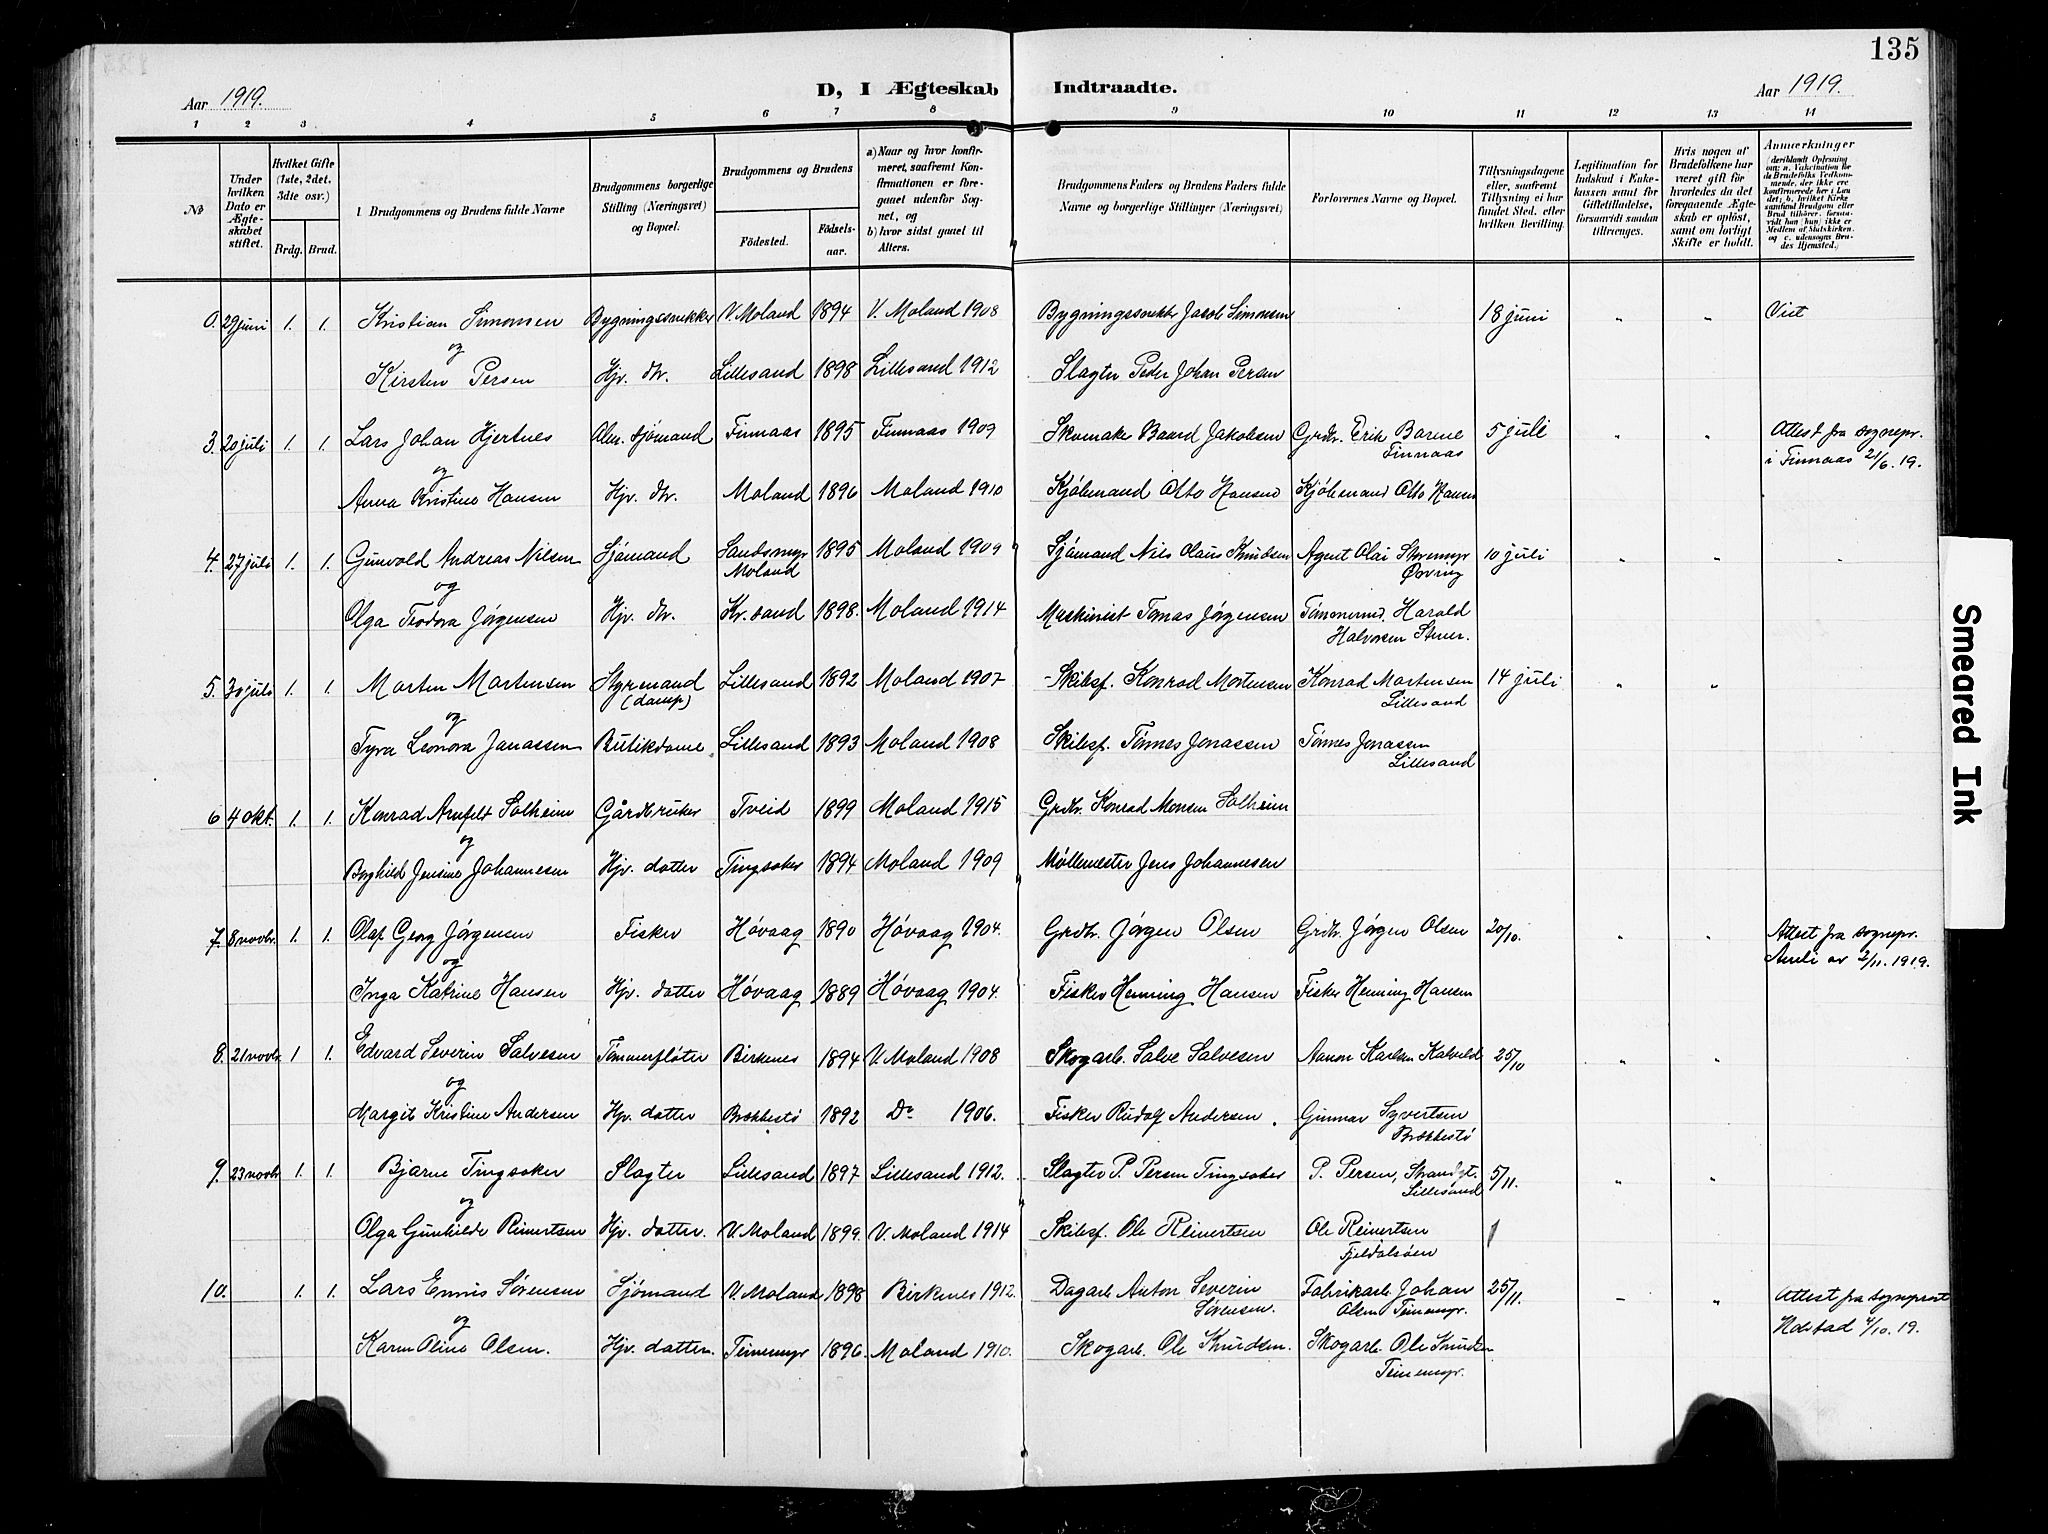 135
Aar 1919.
D, I Ægteskab Indtraadte.
Aar 1919.
1 2 3 4 5 6 7 8 9 10 11 12 13 14
№
Under hvilken Dato er Ægteskabet stiftet.
Hvilket Gifte (1ste, 2det, 3die osv.)
Brdg. Brud.
1. Brudgommens og Brudens fulde Navne
Brudgommens borgerlige Stilling (Næringsvei) og Bopæl.
Brudgommens og Brudens
Födested.
Födselsaar.
a) Naar og hvor konfirmeret, saafremt Konfirmationen er foregaaet udenfor Sognet, og
b) hvor sidst gaaet til Alters.
Brudgommens Faders og Brudens Faders fulde Navne og borgerlige Stillinger (Næringsvei)
Forlovernes Navne og Bopæl.
Tillysningsdagene eller, saafremt Tillysning ei har fundet Sted, efter hvilken Bevilling.
Legitimation for Indskud i Enkekassen samt for Giftetilladelse, forsaavidt saadan tiltrænges.
Hvis nogen af Brudefolkene har været gift för hvorledes da det foregaaende Ægteskab er oplöst, samt om lovligt Skifte er holdt.
Anmærkninger (deriblandt Oplysning om: a. Vaccination for de Brudefolks Vedkommende, der ikke ere konfirmerede her i Landet; b. hvilket Kirkesamfund Brudgom eller Brud tilhörer, forsaavidt han (hun) ikke er Medlem af Statskirken, og c. udensogns Brudes Hjemsted.)
0. 29 juni 1. 1. Kristian Simonsen Bygningssnekker V. Moland 1894 V. Moland 1908 Bygningssnekk. Jacob Simonsen 18 juni " " Viet
og
Kirsten Persen Hjv. dtr. Lillesand 1898 Lillesand 1912 Slagter Peder Johan Persen
3. 20 juli 1. 1. Lars Johan Hjertnes Alm. sjømand Finnaas 1895 Finnaas 1909 Skomaker Baard Jakobsen Grdbr. Erik Barene Finnaas 5 juli " " Attest fra sognepr. i Finnaas 21/6. 19.
og
Anna Kristine Hansen Hjv. dtr. Moland 1896 Moland 1910 Kjøbmand Otto Hansen Kjøbmand Otto Hansen
4. 27 juli 1. 1. Gunvold Andreas Nilsen Sjømand Sandsmyr Moland 1895 Moland 1909 Sjømand Nils Olaus Knudsen Agent Olai Storemyr Øvring 10 juli " " "
og
Olga Teodora Jørgensen Hjv. dtr. Kr.sand 1898. Moland 1914 Maskinist Tomas Jørgensen Tömmermd. Harald Halvorsen
5. 30 juli 1. 1. Morten Mortensen Styrmand (damp) Lillesand 1892 Moland 1907 Skibsf. Konrad Mortensen Konrad Mortensen Lillesand 14 juli " "
og
Tyra Leonora Janassen Butikdame Lillesand 1893 Moland 1908 Skibsf. Tönnes Jonassen Tönnes Jonassen Lillesand
6 4 okt. 1. 1. Konrad Arnfelt Solheim Gårdbruker Tveid 1899 Moland 1915 Grdbr. Konrad Monsen Solheim
og
Borghild Jensine Johannesen Hjv. datter Tingsaker 1894 Moland 1909 Møllemester Jens Johannesen
7. 8 novbr. 1. 1. Olaf Georg Jørgensen Fisker Høvaag 1890 Høvaag 1904. Grdbr. Jørgen Olsen Grdbr. Jørgen Olsen 20/10. " " Attest fra sognepr. Amli av 2/11. 1919.
og
Inga Katrine Hansen Hjv. datter Høvaag 1889 Høvaag 1904. Fisker Henning Hansen Fisker Henning Hansen
8. 21 novbr. 1 1. Edvard Severin Salvesen Tømmerfløter Birkenes 1894 V. Moland 1908 Skogarb. Salve Salvesen Aanon Karlsen Kalveld 25/10 " "
og
Margit Kristine Andersen Hjv. datter Brækkestö 1892 Do 1906. Fisker Rudolf Andersen. Gunnar Syvertsen Brækkestö
9. 23 novbr 1. 1. Bjarne Tingsaker Slagter Lillesand 1897 Lillesand 1912. Slagter P. Persen Tingsaker P. Persen, Strandgt. Lillesand 5/11. " "
og
Olga Gunhilde Reinertsen Hjv. datter. V. Moland 1899. V. Moland 1914 Skibsf. Ole Reinertsen Ole Reinertsen Fjeldalsöen
10. 1. 1. Lars Ennis Sørensen Sjömand V. Moland 1898 Birkenes 1912. Dagarb. Anton Severin Sørensen. Fabrikarb. Johan Olsen Teinemyr. 25/11. " Attest fra sogneprest Holstad 4/10. 19.
og
Karen Oline Olsen. Hjv. datter. Teinemyr 1896. Moland 1910. Skogarb. Ole Knudsen. Skogarb. Ole Knudsen Teinemyr.
Smeared Ink